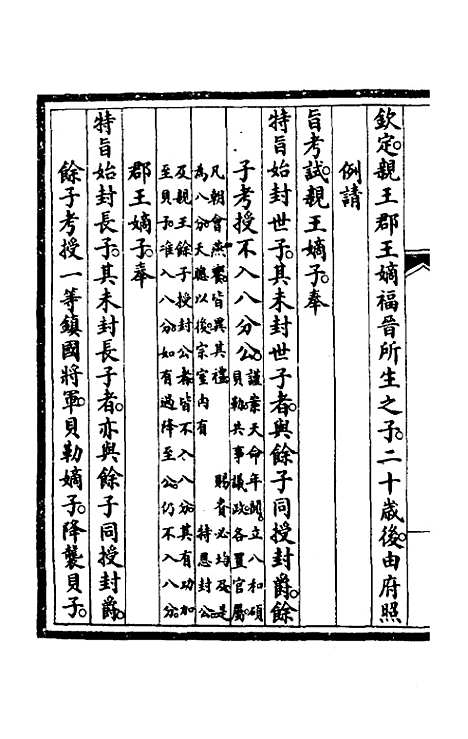 欽定。親王郡王嫡福晉所生之子。二十歲後。由府照
例請
旨考試。親王嫡子。奉
特旨始封世子。其未封世子者。與餘子同授封爵。餘
子考授不入八分公。
謹案天命年間。立八和碩
貝勒。共事議政。各置官屬。
凡朝會燕饗。皆異其禮。 賜賚必均及。是
為八分。天聰以後。宗室內有 特恩封公
及親王餘子授封公者。皆不入八分。其有功加
至貝子。准入八分。如有過降至公。仍不入八分。
郡王嫡子。奉
特旨始封長子。其未封長子者。亦與餘子同授封爵。
餘子考授一等鎮國將軍。貝勒嫡子。降襲貝子。